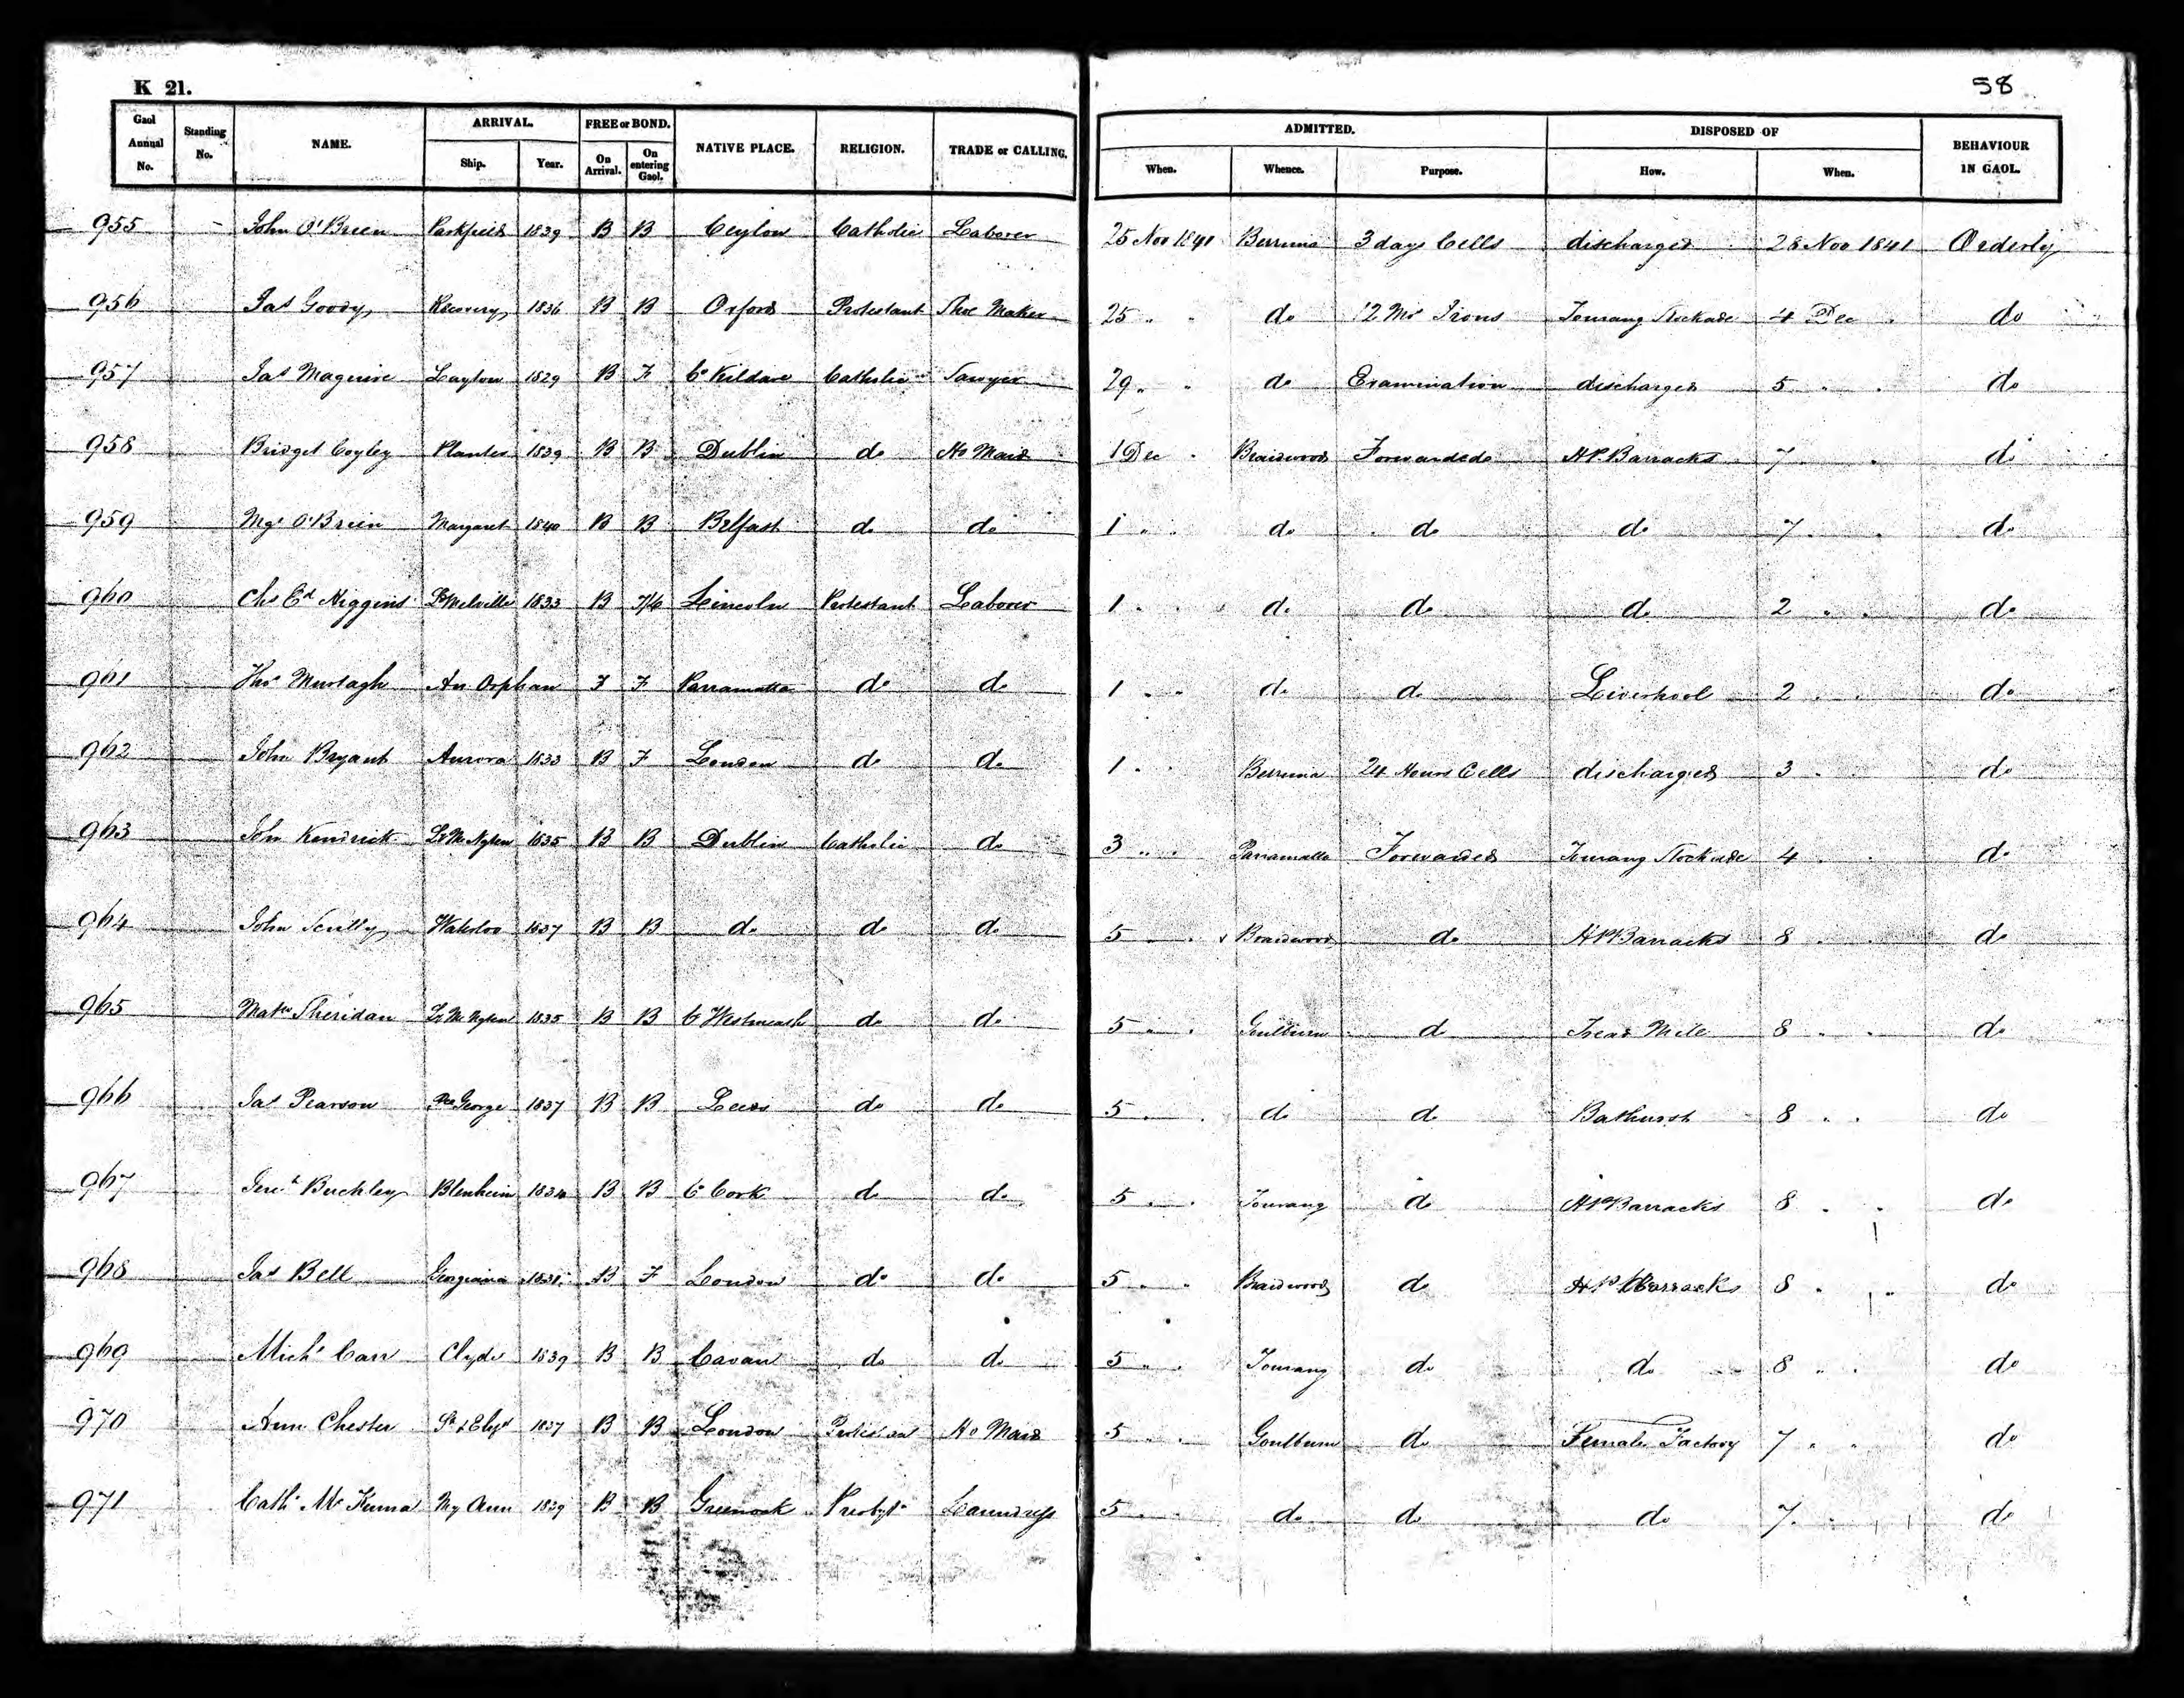 K 21.
58
Gaol Annual No. Standing No. NAME. ARRIVAL. Ship. Year. FREE or BOND. On Arrival. On entering Gaol. NATIVE PLACE. RELIGION. TRADE or CALLING. ADMITTED. When. Whence. Purpose. DISPOSED OF How. When. BEHAVIOUR IN GAOL.
955 John O'Brien Parkfield 1839 B B Ceylon Catholic Laborer 25 Nov 1841 Berrima 3 days Cells discharged 28 Nov 1841 Orderly
956 Jas Goody Recovery 1836 B B Oxford Protestant Shoe Maker 25 " " do 12 Mos Irons Towrang Stockade 4 Dec " do
957 Jas Maguire Layton 1829 B F Co Kildare Catholic Sawyer 29 " " do Examination discharged 5 " " do
958 Bridget Coyley Planter 1839 B B Dublin do Ho Maid 1 Dec " Braidwood Forwarded HP. Barracks 7 " do
959 Mgt O'Brien Margaret 1840 B B Belfast do do 1 " " do do do 7 " do
960 Chs Ed Higgins Ld Melville 1833 B Lincoln Protestant Laborer 1 " " do do do 2 " " do
961 Thos Murtagh An Orphan F F Parramatta do do 1 " " do do Liverpool 2 " " do
962 John Bryant Aurora 1833 B F London do do 1 " " Berrima 24 Hours Cells discharged 3 " do
963 John Kendrick 1835 B B Dublin Catholic do 3 " " Parramatta Forwarded Towrang Stockade 4 " " do
964 John Scully Waterloo 1837 B B do do do 5 " " Braidwood do HP Barracks 8 " " do
965 Matw Sheridan 1835 B B Co Westmeath do do 5 " " Goulburn do Tread Mill 8 " " do
966 Jas Pearson Pce George 1837 B B Leeds do do 5 " " do do Bathurst 8 " " do
967 Jereh Buckley Blenheim 1834 B B Co Cork do do 5 " " Towrang do HP Barracks 8 " " do
968 Jas Bell Georgiana 1831 B F London do do 5 " " Braidwood do HP Barracks 8 " " do
969 Michl Carr Clyde 1839 B B Cavan do do 5 " " Towrang do do 8 " " do
970 Ann Chester 1837 B B London Protestant Ho Maid 5 " " Goulburn do Female Factory 7 " " do
971 Cathe McKenna My Ann 1839 B B Greenock Presbyn Laundress 5 " " do do do 7 " " do